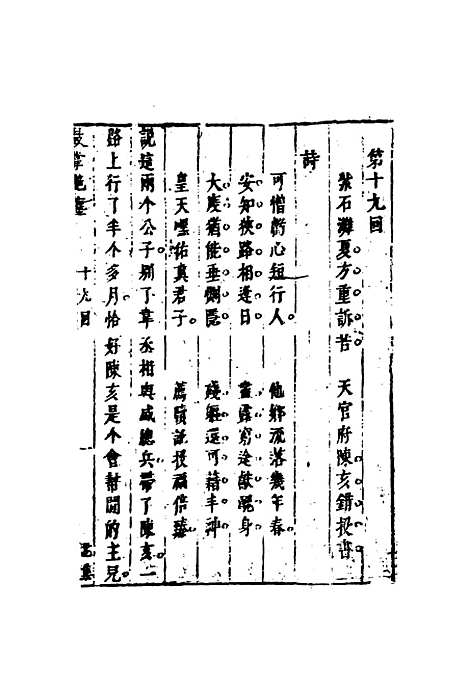 第十九回
紫石灘夏方重訴苦　天官府陳亥錯投書
詩
可憎虧心短行人　他鄉流落幾年春
安知狹路相逢日　盡露窮途醜身
大度猶能垂惻隱　殘軀還可藉丰神
皇天嘿佑真君子　薦牘託投福倍臻
說這兩个公子别了韋丞相與戚總兵帶了陳亥一
路上行了半个多月恰好陳亥是个會幇閒的主兒
十九回